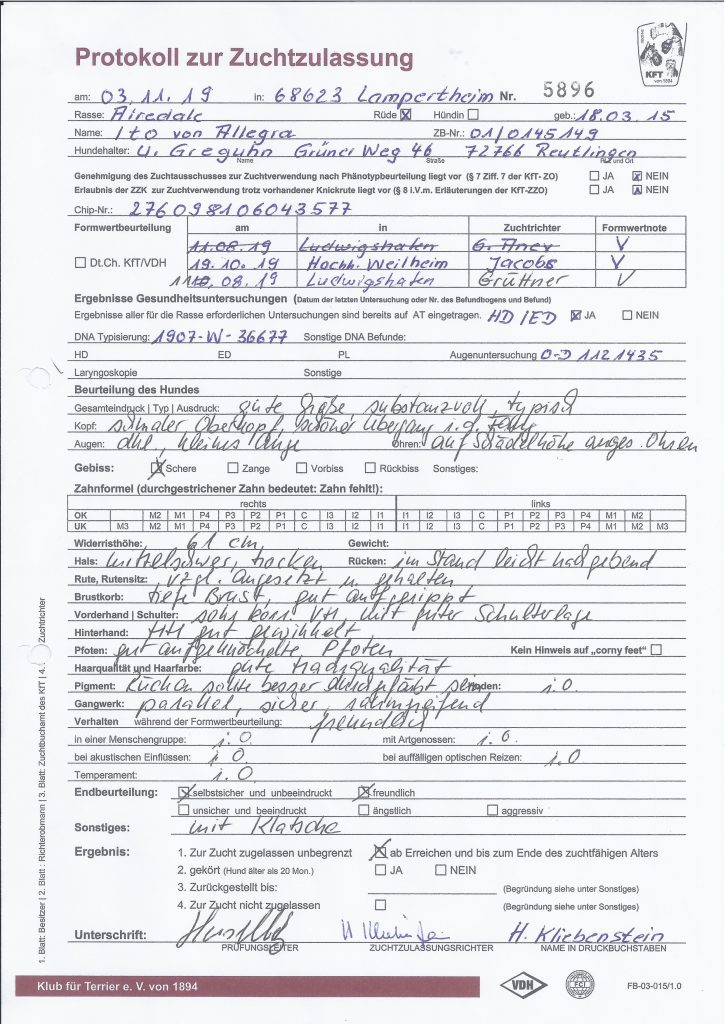 Protokoll zur Zuchtzulassung
KFT
von 1894
am: 03.11.19 in: 68623 Lampertheim Nr. 5896
Rasse: Airedale Rüde ☒ Hündin ☐ geb.: 18.03.15
Name: Ito von Allegra ZB-Nr.: 01/0145149
Hundehalter: U. Greguhn Grüner Weg 46 72766 Reutlingen
Name Straße PLZ und Ort
Genehmigung des Zuchtausschusses zur Zuchtverwendung nach Phänotypbeurteilung liegt vor (§ 7 Ziff. 7 der KfT-ZO) ☐ JA ☒ NEIN
Erlaubnis der ZZK zur Zuchtverwendung trotz vorhandener Knickrute liegt vor (§ 8 i.V.m. Erläuterungen der KfT-ZZO) ☐ JA ☒ NEIN
Chip-Nr.: 276098106043577
Formwertbeurteilung am in Zuchtrichter Formwertnote
11.08.19 Ludwigshafen G. V
☐ Dt.Ch. KfT/VDH 19.10.19 Hochh. Weilheim Jacobs V
08.19 Ludwigshafen Grüttner V
Ergebnisse Gesundheitsuntersuchungen (Datum der letzten Untersuchung oder Nr. des Befundbogens und Befund)
Ergebnisse aller für die Rasse erforderlichen Untersuchungen sind bereits auf AT eingetragen. HD/ED ☒ JA ☐ NEIN
DNA Typisierung: 1907-W-36677 Sonstige DNA Befunde:
HD ED PL Augenuntersuchung O-D 1121435
Laryngoskopie Sonstige
Beurteilung des Hundes
Gesamteindruck | Typ | Ausdruck: gute Größe, substanzvoll, typisch
Kopf: schmaler Oberkopf, schöner Übergang i.d. Fang
Augen: dkl., kleines Auge Ohren: auf Schädelhöhe anges. Ohren
Gebiss: ☒ Schere ☐ Zange ☐ Vorbiss ☐ Rückbiss Sonstiges:
Zahnformel (durchgestrichener Zahn bedeutet: Zahn fehlt!):
rechts links
OK M2 M1 P4 P3 P2 P1 C I3 I2 I1 I1 I2 I3 C P1 P2 P3 P4 M1 M2
UK M3 M2 M1 P4 P3 P2 P1 C I3 I2 I1 I1 I2 I3 C P1 P2 P3 P4 M1 M2 M3
Widerristhöhe: 61 cm Gewicht:
Hals: mittelschwer, trocken Rücken: im Stand leicht nachgebend
Rute, Rutensitz: vzgl. angesetzt u. gehalten
Brustkorb: tiefe Brust, gut aufgerippt
Vorderhand | Schulter: sehr korr. VH mit guter Schulterlage
Hinterhand: HH gut gewinkelt
Pfoten: gut aufgeknöchelte Pfoten Kein Hinweis auf „corny feet“ ☐
Haarqualität und Haarfarbe: gute Haarqualität
Pigment: Rücken sollte besser durchgefärbt sein Hoden: i.O.
Gangwerk: parallel, sicher, raumgreifend
Verhalten während der Formwertbeurteilung: freundlich
in einer Menschengruppe: i.O. mit Artgenossen: i.O.
bei akustischen Einflüssen: i.O. bei auffälligen optischen Reizen: i.O
Temperament: i.O
Endbeurteilung: ☒ selbstsicher und unbeeindruckt ☒ freundlich
☐ unsicher und beeindruckt ☐ ängstlich ☐ aggressiv
Sonstiges: mit Klatsche
Ergebnis: 1. Zur Zucht zugelassen unbegrenzt ☒ ab Erreichen und bis zum Ende des zuchtfähigen Alters
2. gekört (Hund älter als 20 Mon.) ☐ JA ☐ NEIN
3. Zurückgestellt bis: (Begründung siehe unter Sonstiges)
4. Zur Zucht nicht zugelassen ☐ (Begründung siehe unter Sonstiges)
Unterschrift: H. Kliebenstein
PRÜFUNGSLEITER ZUCHTZULASSUNGSRICHTER NAME IN DRUCKBUCHSTABEN
Klub für Terrier e. V. von 1894 VDH FCI FB-03-015/1.0
1. Blatt: Besitzer | 2. Blatt : Richterobmann | 3. Blatt: Zuchtbuchamt des KfT | 4. Zuchtrichter